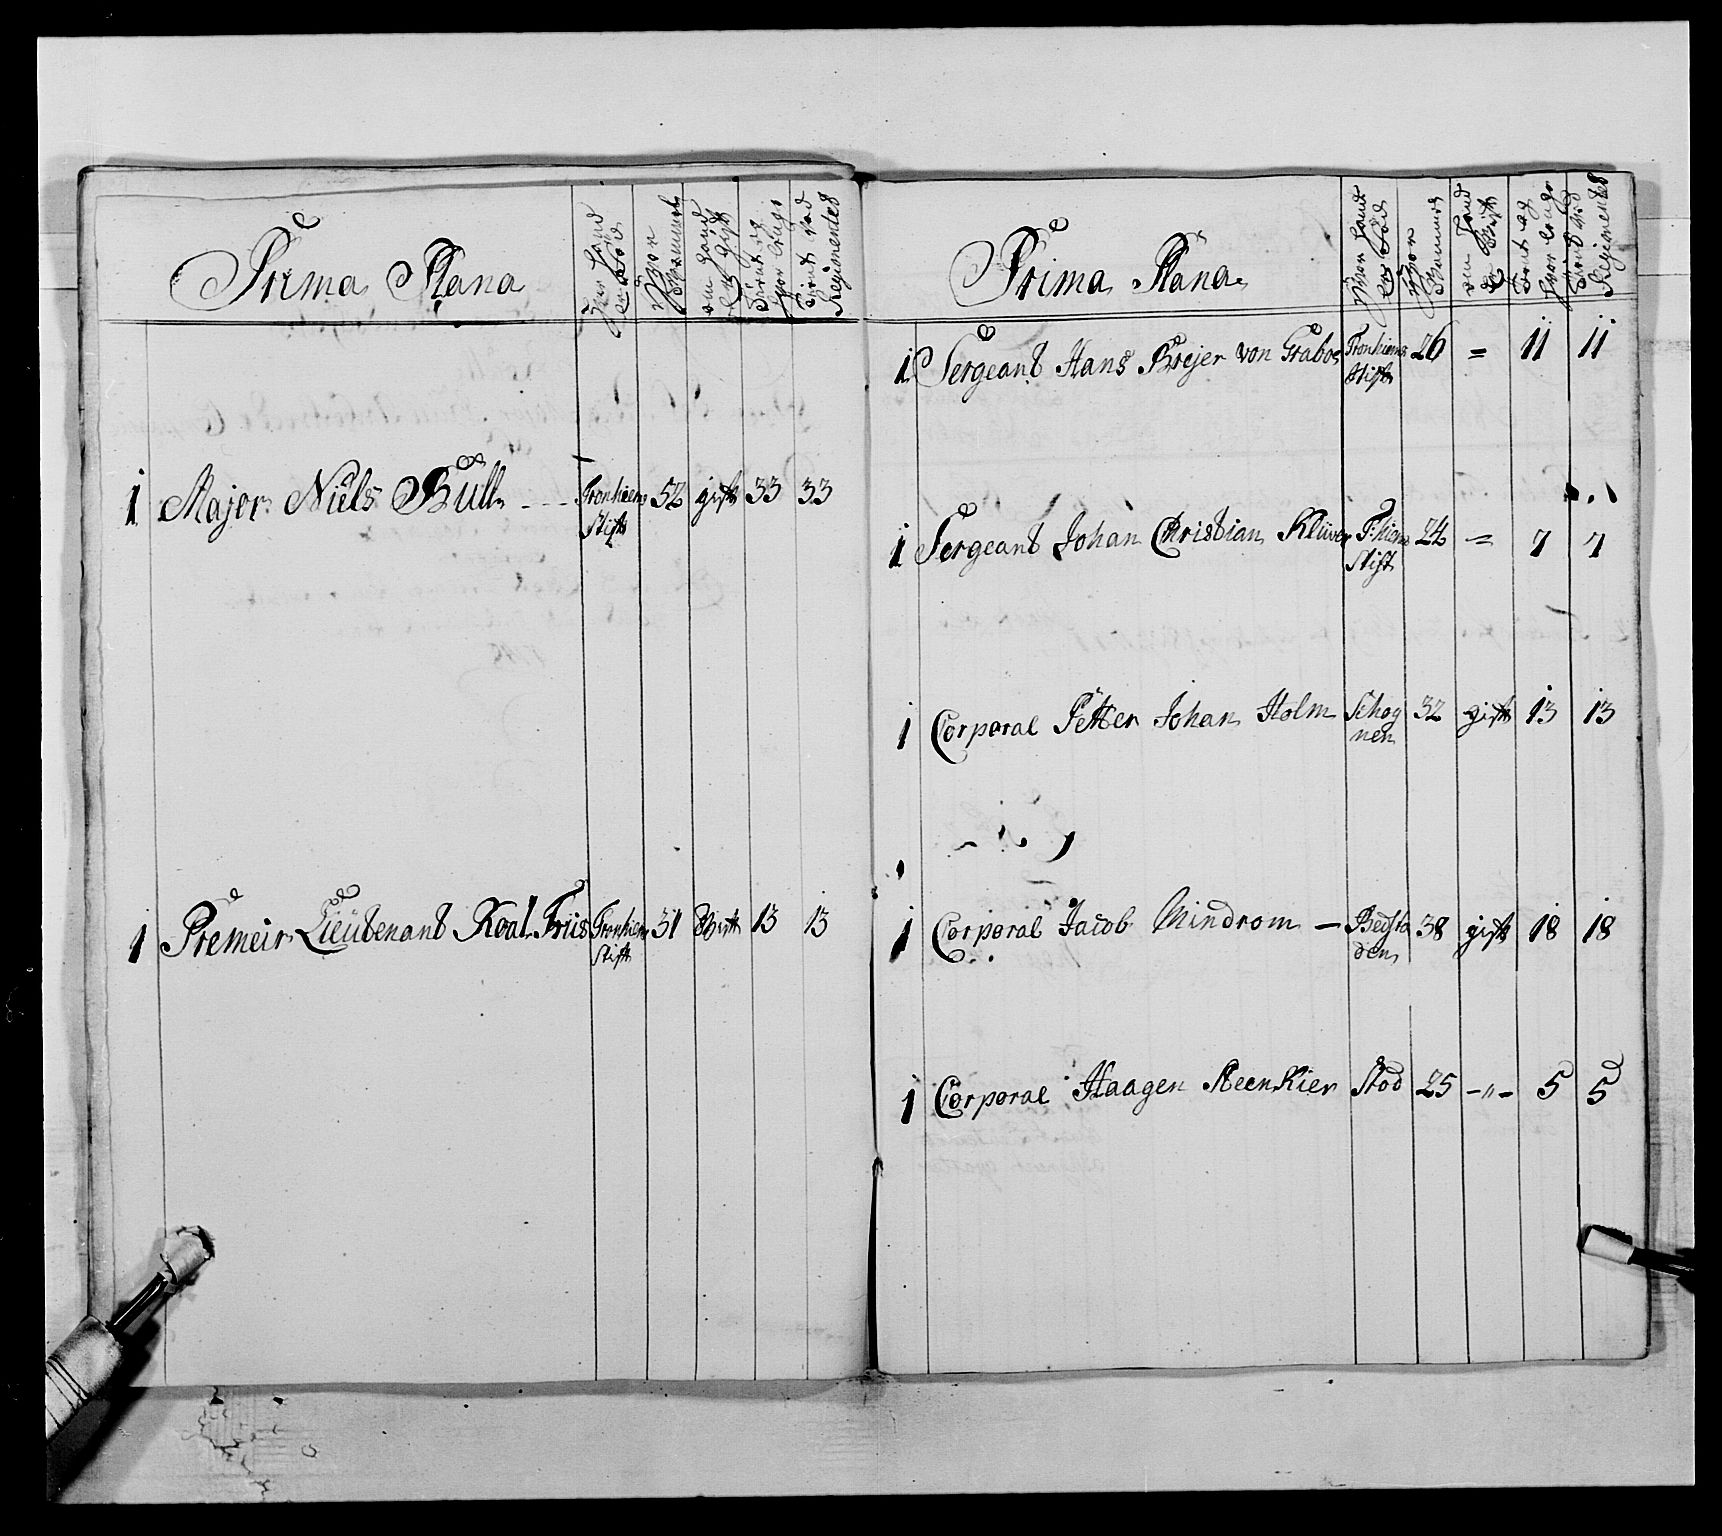 Prima Plana
Hvor hand er fød
Hvor gammel
om hand er gift
Tient og hvor lenge
Tient ved Regimentet
1 Major Niels Bull - - - Tronhiems Stift 52 gift 33 33
1 Premeir Lieutenant Roal Friis Tronhiems Stift 31 Gift 13 13
Prima Plana
Hvor hand er fød
Hvor gammel
om hand er gift
Tient og hvor lenge
Tient ved Regimentet
1 Sergeant Hans Brejer von Grabov Tronhiems Stift 26 = 11 11
1 Sergeant Johan Christian Klüver T:hiems Stift 24 = 7 7
1 Corporal Petter Johan Holm Schog nen 32 gift 13 13
1 Corporal Jacob Mindrom - Begsta den 38 gift 18 18
1 Corporal Haagen SteenKier Stod 25 -"- 5 5